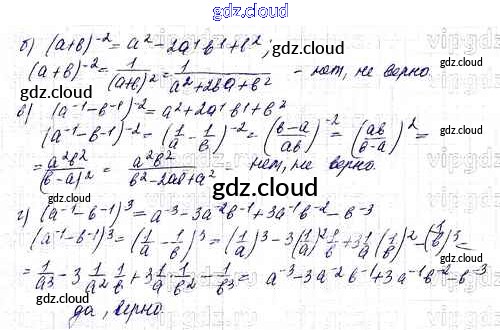 gdz.cloud
б) (a+b)^-2 = a^2 - 2a^1b^1 + b^2;
(a+b)^-2 = 1/(a+b)^2 = 1/(a^2+2ba+b^2) - нет, не верно.
в) (a^-1 - b^-1)^-2 = a^2 + 2a^1b^1 + b^2
(a^-1 - b^-1)^-2 = (1/a - 1/b)^-2 = ((b-a)/ab)^-2 = (ab/(b-a))^2 =
= a^2b^2/(b-a)^2 = a^2b^2/(b^2-2ab+a^2) = нет, не верно.
gdz.cloud
г) (a^-1 - b^-1)^3 = a^-3 - 3a^-2b^-1 + 3a^-1b^-2 - b^-3
(a^-1 - b^-1)^3 = (1/a - 1/b)^3 = (1/a)^3 - 3(1/a)^2 1/b + 3 1/a (1/b)^2 - (1/b)^3 =
= 1/a^3 - 3 1/a^2 1/b + 3 1/a · 1/b^2 - 1/b^3 = a^-3 - 3a^-2b^-1 + 3a^-1b^-2 - b^-3
да, верно.